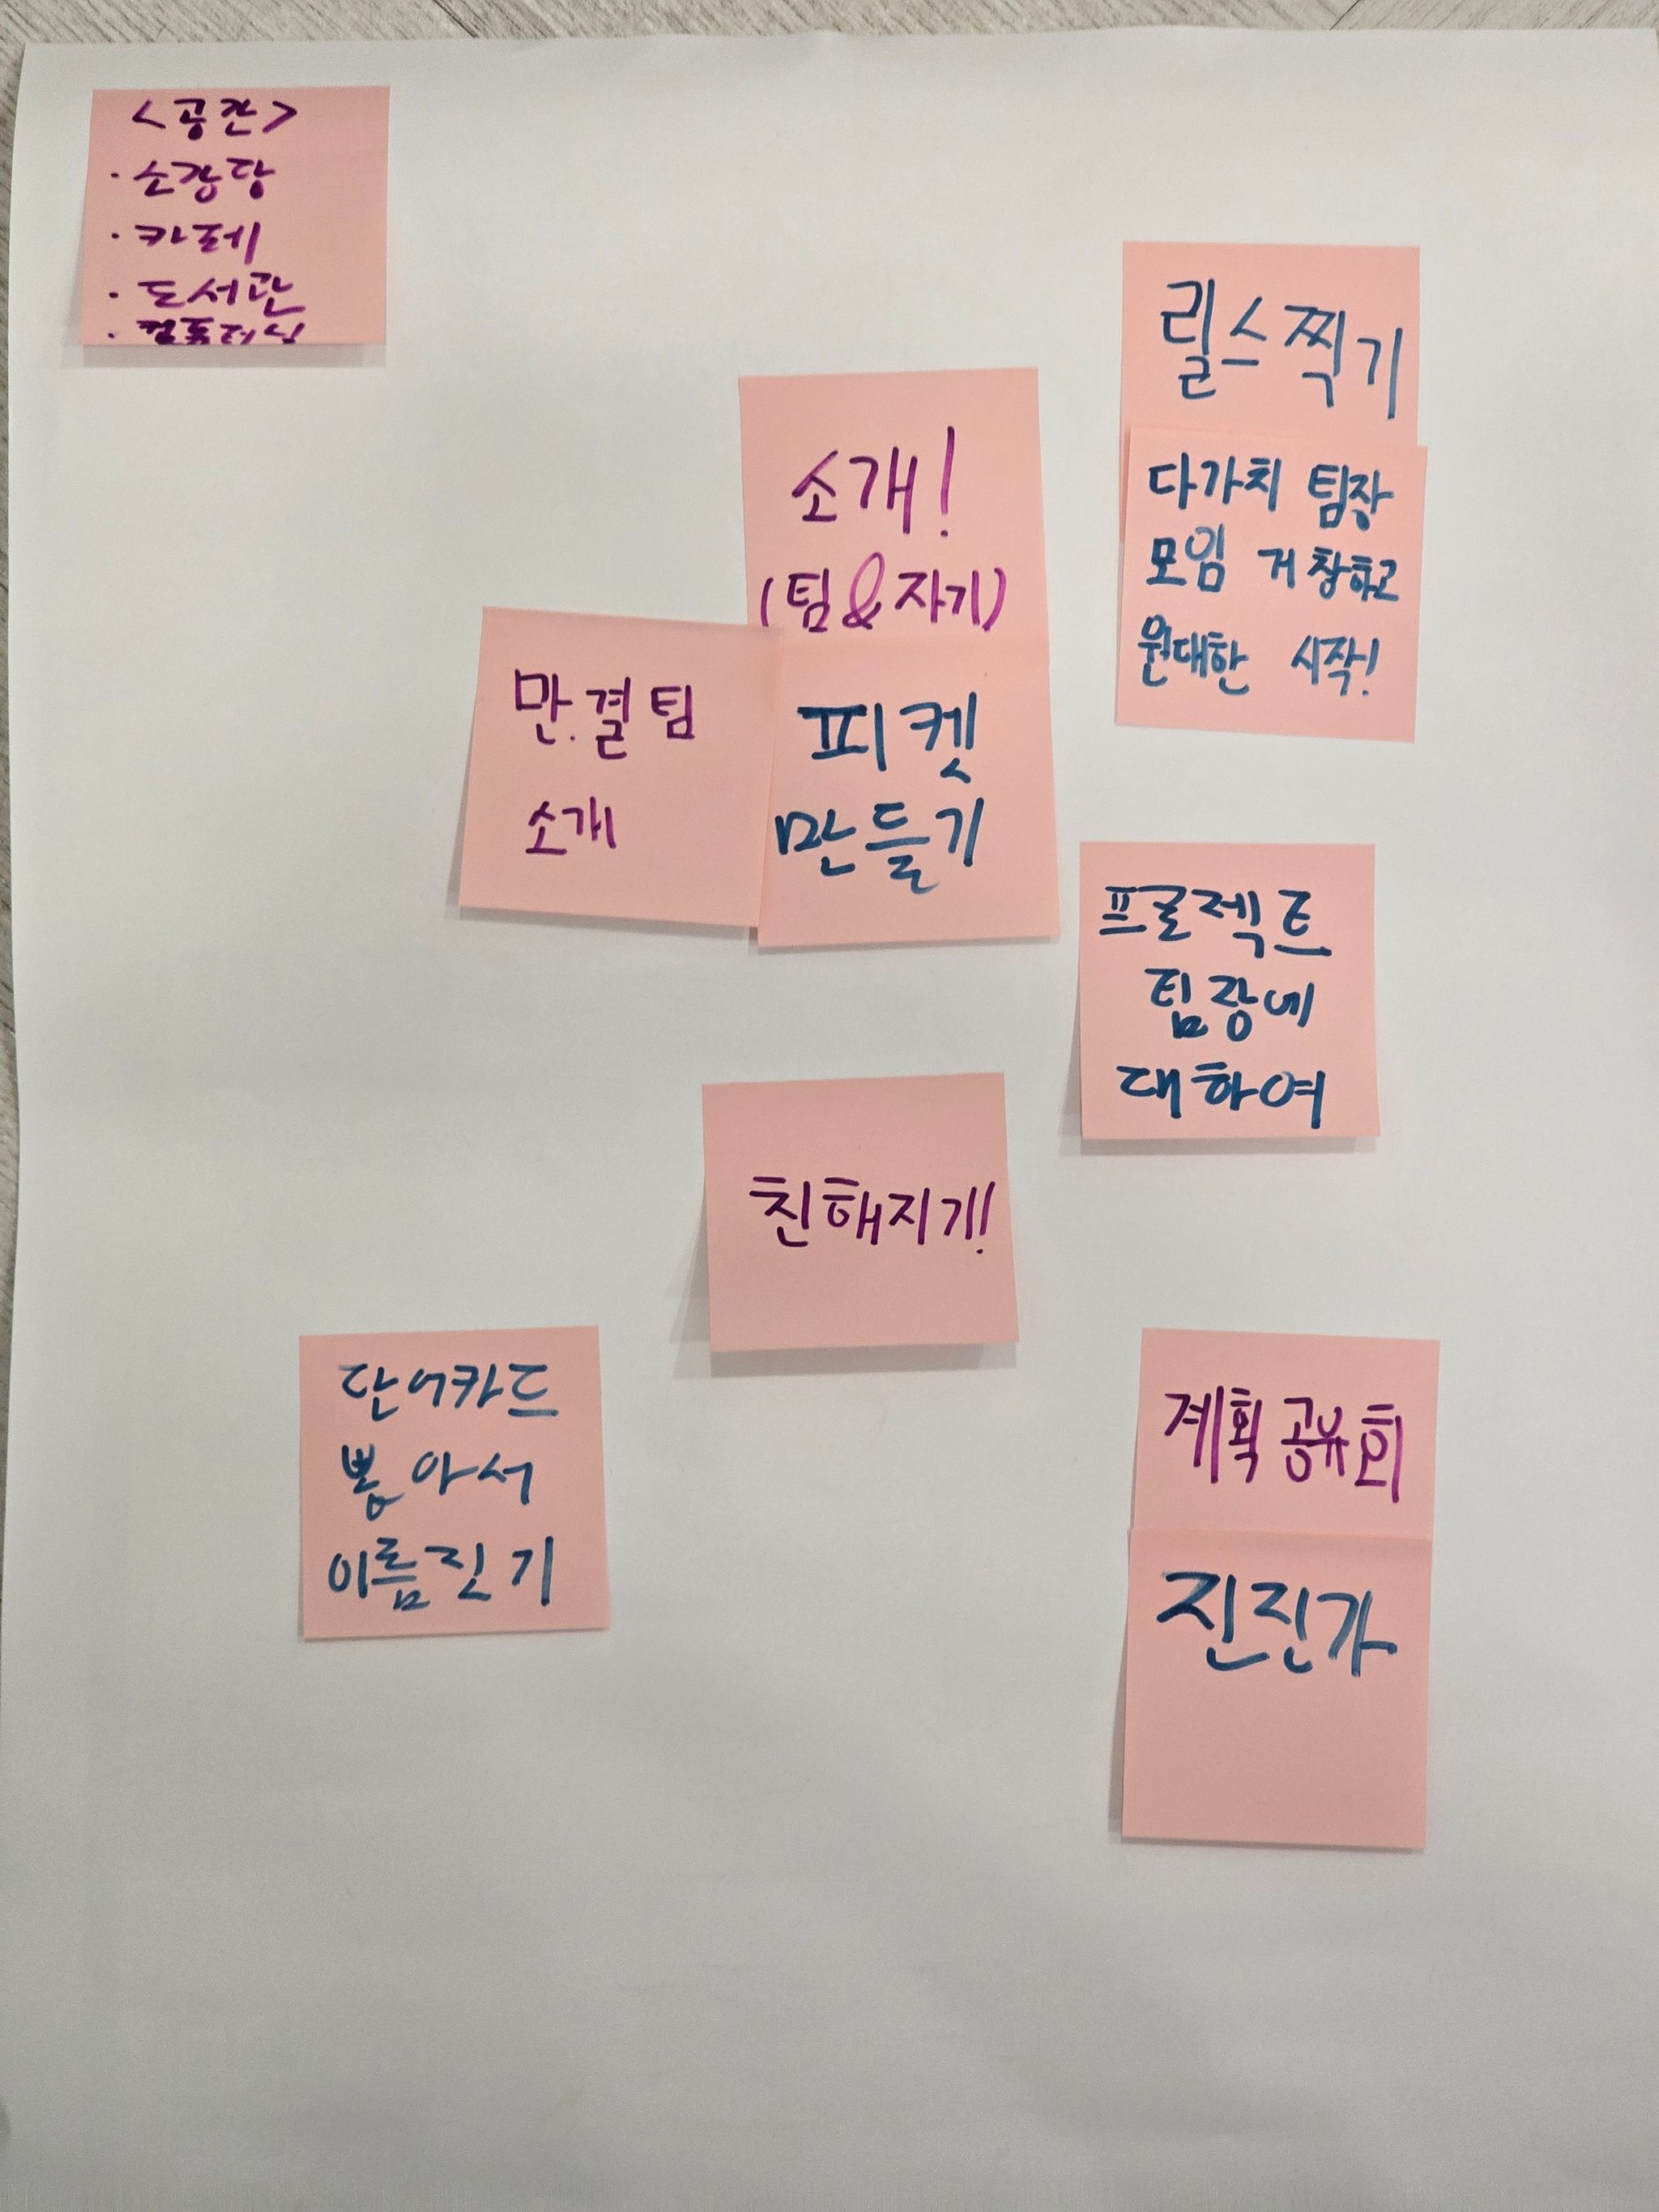 <공간>
· 소강당
· 카페
· 도서관
릴스찍기
다가치 팀장
모임 거창하고
원대한 시작!
소개!
(팀&자기)
만.결팀
소개
피켓
만들기
프로젝트
팀장에
대하여
친해지기!
단어카드
뽑아서
이름짓기
계획 공유회
진진가